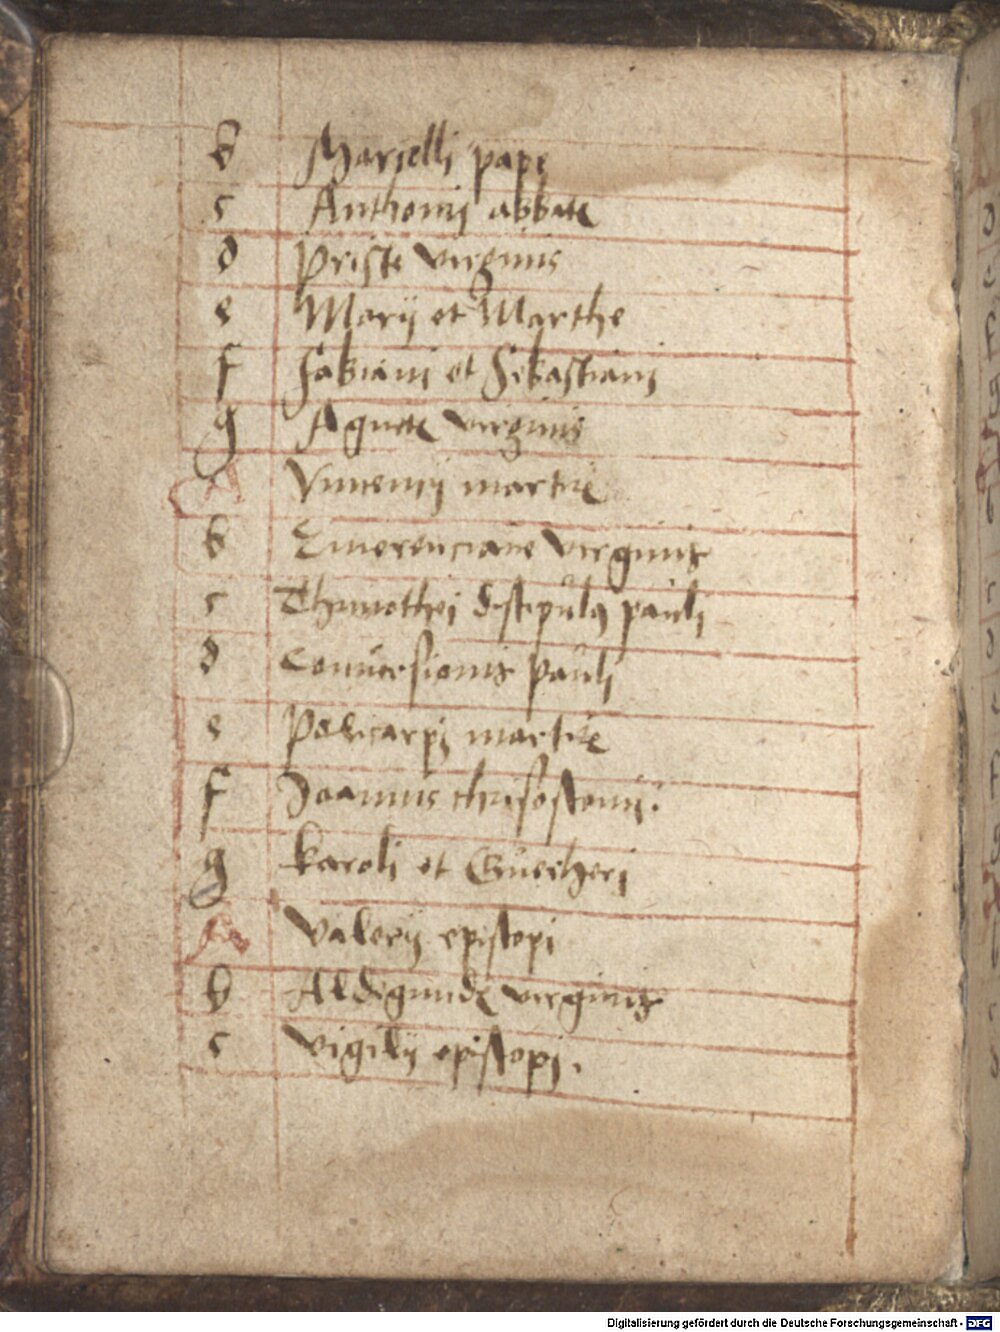 b Marcelli pape
c Anthonij abbatis
d Prisce virginis
e Marij et Marthe
f Fabiani et Sebastiani
g Agnetis virginis
A Vincencij martiris
b Emerenciane virginis
c Thimothei discipulus pauli
d Conuersionis pauli
e Policarpi martiris
f Joannis chrisostomi.
g karoli et
A Valerij episcopi
b Aldegundis virginis
c Vigilij episcopi.
Digitalisierung gefördert durch die Deutsche Forschungsgemeinschaft - DFG